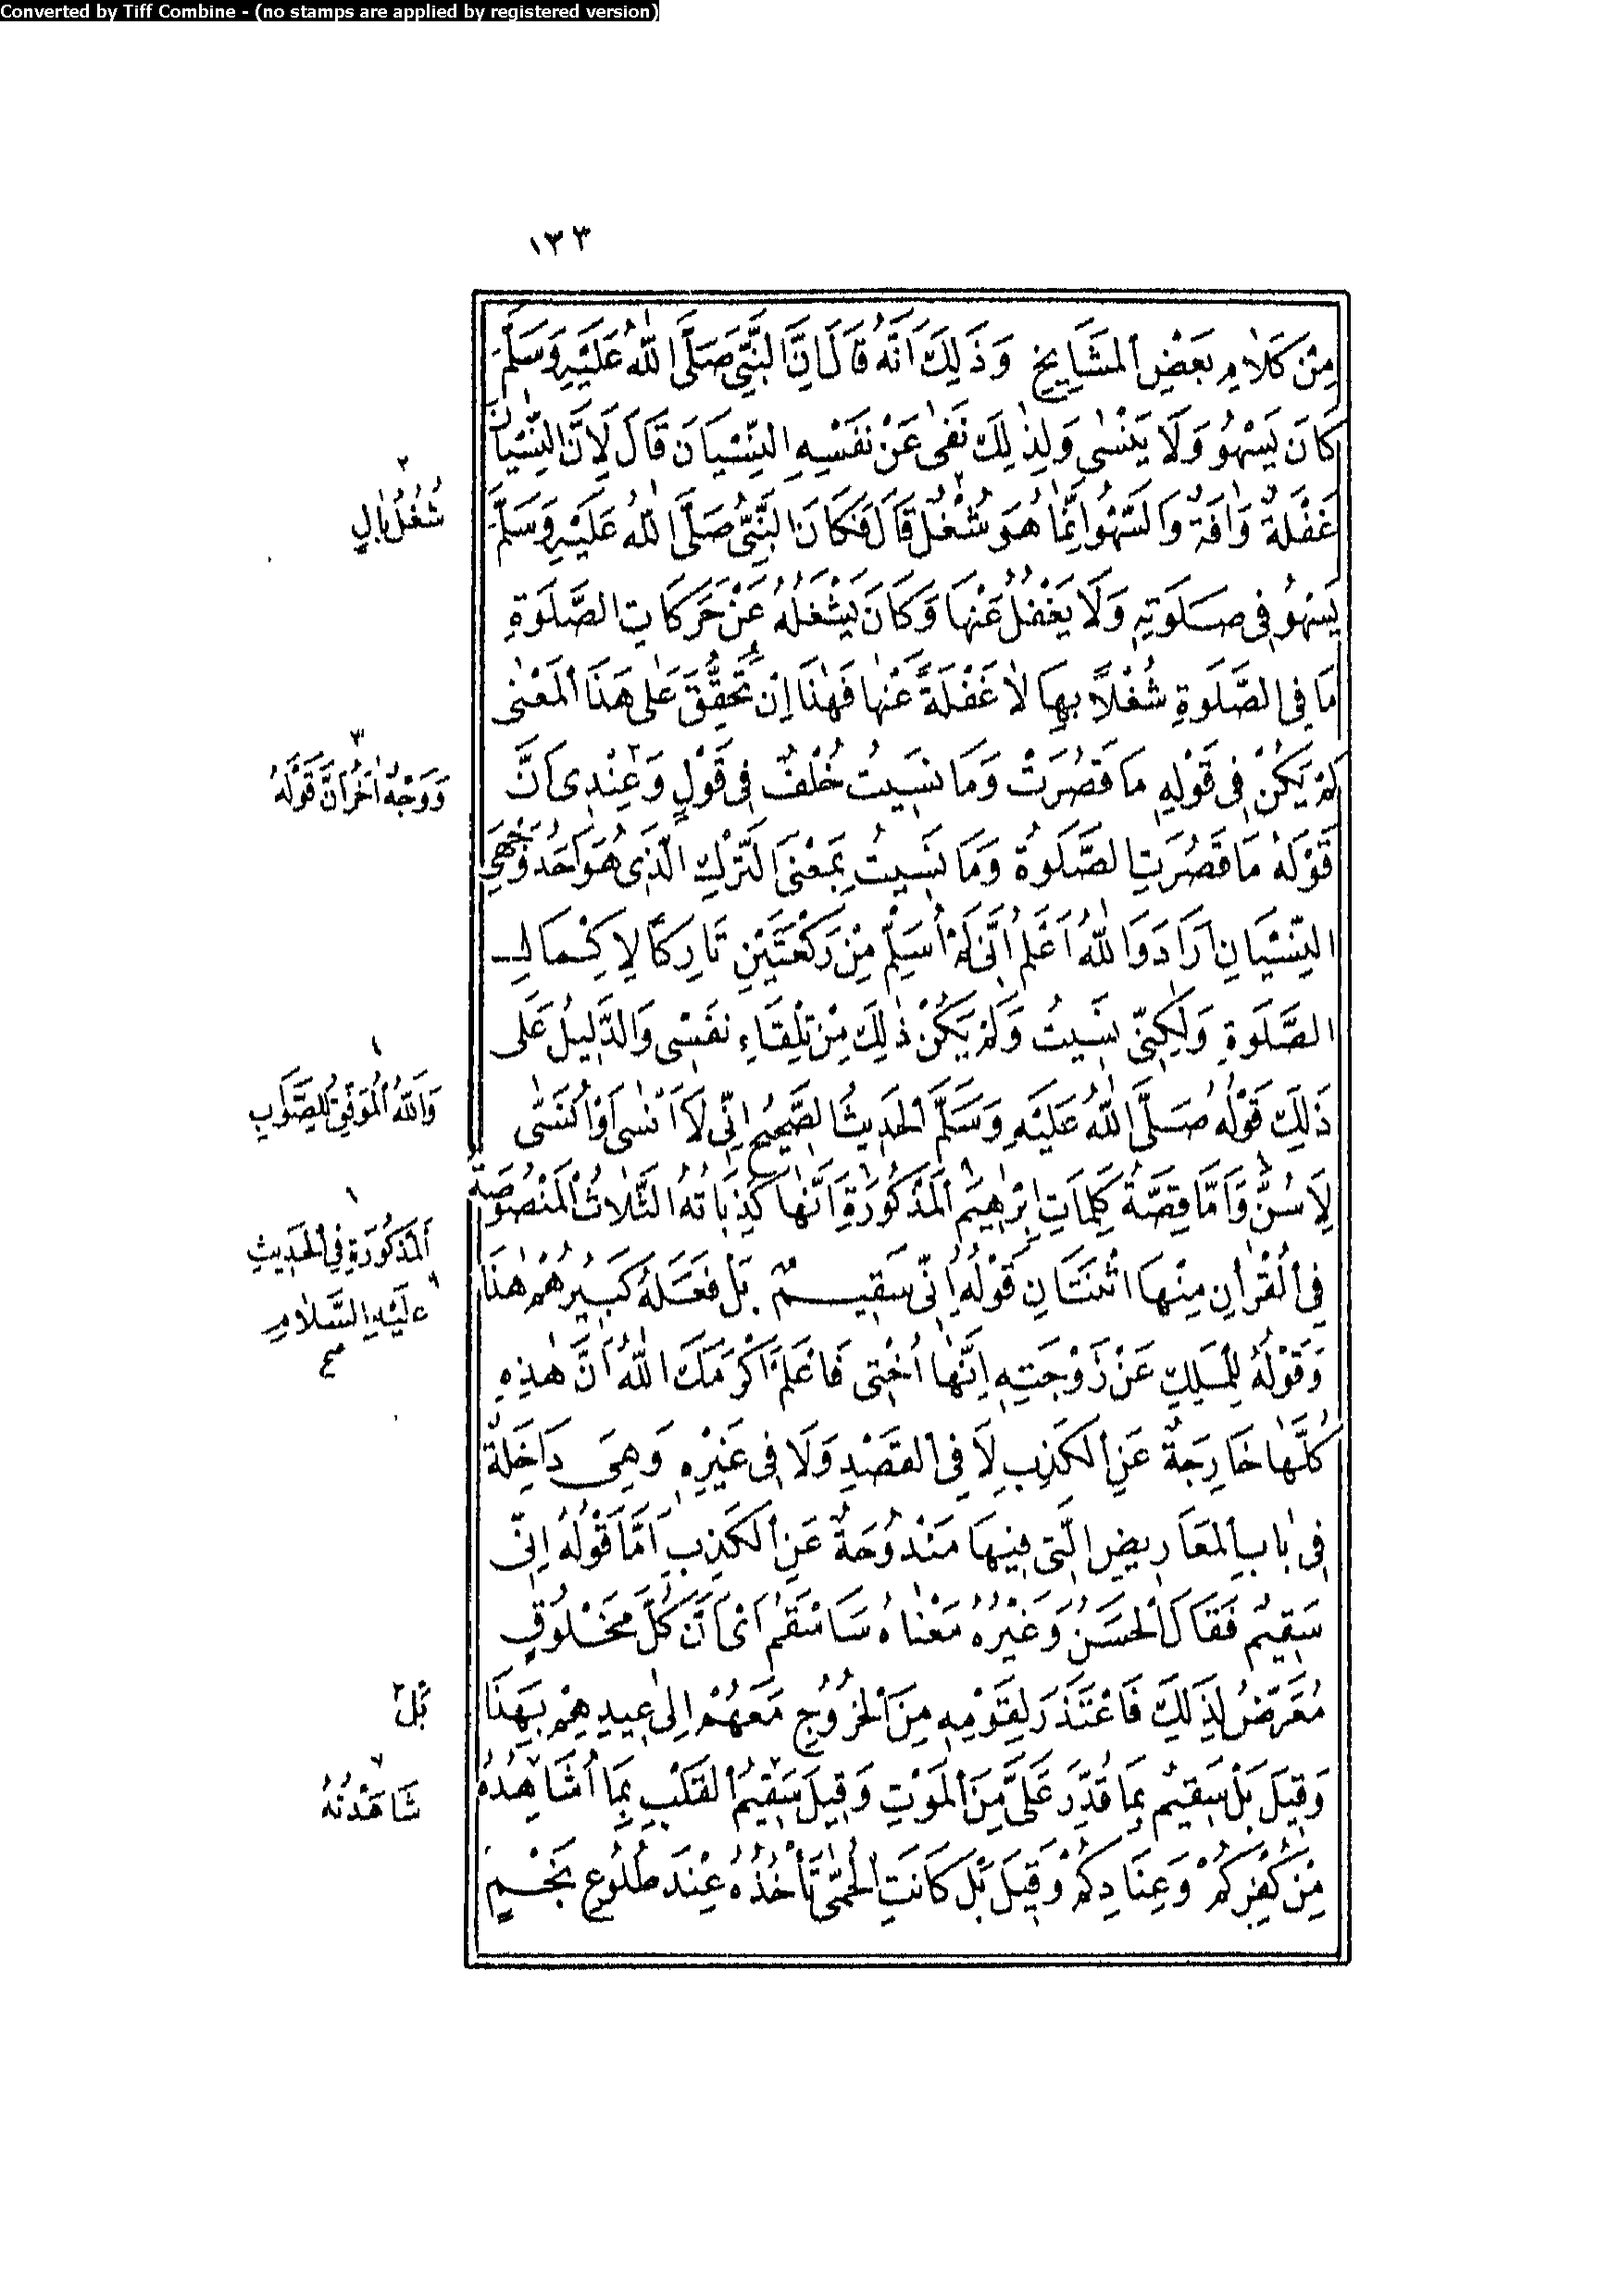 Converted by Tiff Combine - (no stamps are applied by registered version)
١٣٣
مِنْ كَلَامِ بَعْضِ الْمَشَايِخِ وَذَلِكَ اَنَّهُ قَالَ اِنَّ النَّبِيَّ صَلَّى اللهُ عَلَيْهِ وَسَلَّمَ
كَانَ يَسْهُو وَلَا يَنْسٰى وَلِذٰلِكَ نَفٰى عَنْ نَفْسِهِ النِّسْيَانَ قَالَ لِاَنَّ النِّسْيَانَ
غَفْلَةٌ وَاٰفَةٌ وَالسَّهْوُ اِنَّمَا هُوَ شُغْلٌ قَالَ فَكَانَ النَّبِيُّ صَلَّى اللهُ عَلَيْهِ وَسَلَّمَ
يَسْهُو فِى صَلَوتِهِ وَلَا يَغْفُلُ عَنْهَا وَكَانَ يَشْغَلُهُ عَنْ حَرَكَاتِ الصَّلَوةِ
مَا فِى الصَّلَوةِ شُغْلًا بِهَا لَا غَفْلَةً عَنْهَا فَهٰذَا اِنْ تُحُقِّقَ عَلٰى هَذَا الْمَعْنٰى
لَمْ يَكُنْ فِى قَوْلِهِ مَا قَصُرَتْ وَمَا نَسِيتُ خُلْفٌ فِى قَوْلٍ وَعِنْدِى اَنَّ
قَوْلَهُ مَا قَصُرَتِ الصَّلَوةُ وَمَا نَسِيتُ بِمَعْنَى التَّرْكِ الَّذِى هُوَ اَحَدُ وَجْهَيِ
النِّسْيَانِ اَرَادَ وَاللهُ اَعْلَمُ اَنِّى لَمْ اُسَلِّمْ مِنْ رَكْعَتَيْنِ تَارِكًا لِاِكْمَالِ
الصَّلَوةِ وَلٰكِنِّى نَسِيتُ وَلَمْ يَكُنْ ذٰلِكَ مِنْ تِلْقَاءِ نَفْسِى وَالدَّلِيلُ عَلٰى
ذَلِكَ قَوْلُهُ صَلَّى اللهُ عَلَيْهِ وَسَلَّمَ الْحَدِيثَ الصَّحِيحَ اِنِّى لَاَنْسٰى اَوْ اُنَسّٰى
لِاَسُنَّ وَاَمَّا قِصَّةُ كَلِمَاتِ اِبْرٰهِيمَ الْمَذْكُورَةِ اَنَّهَا كَذِبَاتُهُ الثَّلَاثُ الْمَنْصُوصَةُ
فِى الْقُرْاٰنِ مِنْهَا اثْنَتَانِ قَوْلُهُ اِنِّى سَقِيمٌ . بَلْ فَعَلَهُ كَبِيرُهُمْ هٰذَا
وَقَوْلُهُ لِلْمَلِكِ عَنْ زَوْجَتِهِ اِنَّهَا اُخْتِى فَاعْلَمْ اَكْرَمَكَ اللهُ اَنَّ هٰذِهِ
كُلَّهَا خَارِجَةٌ عَنِ الْكَذِبِ لَا فِى الْقَصْدِ وَلَا فِى غَيْرِهِ وَهِىَ دَاخِلَةٌ
فِى بَابِ الْمَعَارِيضِ الَّتِى فِيهَا مَنْدُوحَةٌ عَنِ الْكَذِبِ اَمَّا قَوْلُهُ اِنِّى
سَقِيمٌ فَقَالَ الْحَسَنُ وَغَيْرُهُ مَعْنَاهُ سَاَسْقَمُ اَىْ اَنَّ كُلَّ مَخْلُوقٍ
مُعَرَّضٌ لِذَلِكَ فَاعْتَذَرَ لِقَوْمِهِ مِنَ الْخُرُوجِ مَعَهُمْ اِلٰى عِيدِهِمْ بِهَذَا
وَقِيلَ بَلْ سَقِيمٌ بِمَا قُدِّرَ عَلَىَّ مِنَ الْمَوْتِ وَقِيلَ سَقِيمُ الْقَلْبِ بِمَا اُشَاهِدُهُ
مِنْ كُفْرِكُمْ وَعِنَادِكُمْ وَقِيلَ بَلْ كَانَتِ الْحُمّٰى تَأْخُذُهُ عِنْدَ طُلُوعِ نَجْمٍ
٢
شُغْلُ بَالٍ
٣
وَوَجْهٌ اٰخَرُ اَنَّ قَوْلَهُ
٤
وَاللهُ الْمُوَفِّقُ لِلصَّوَابِ
١
اَلْمَذْكُورَةِ فِى الْحَدِيثِ
٩
عَلَيْهِ السَّلَامُ
صح
بَلْ ٢
٧
شَاهَدْتُهُ